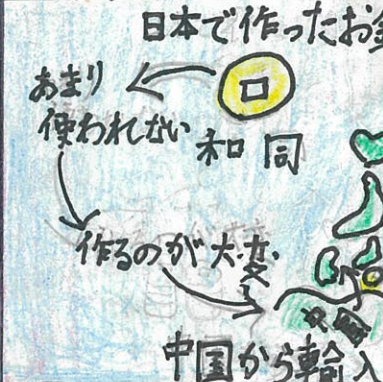 日本で作ったお金
あまり
使われない
和同
作るのが大変
中国
中国から輸入